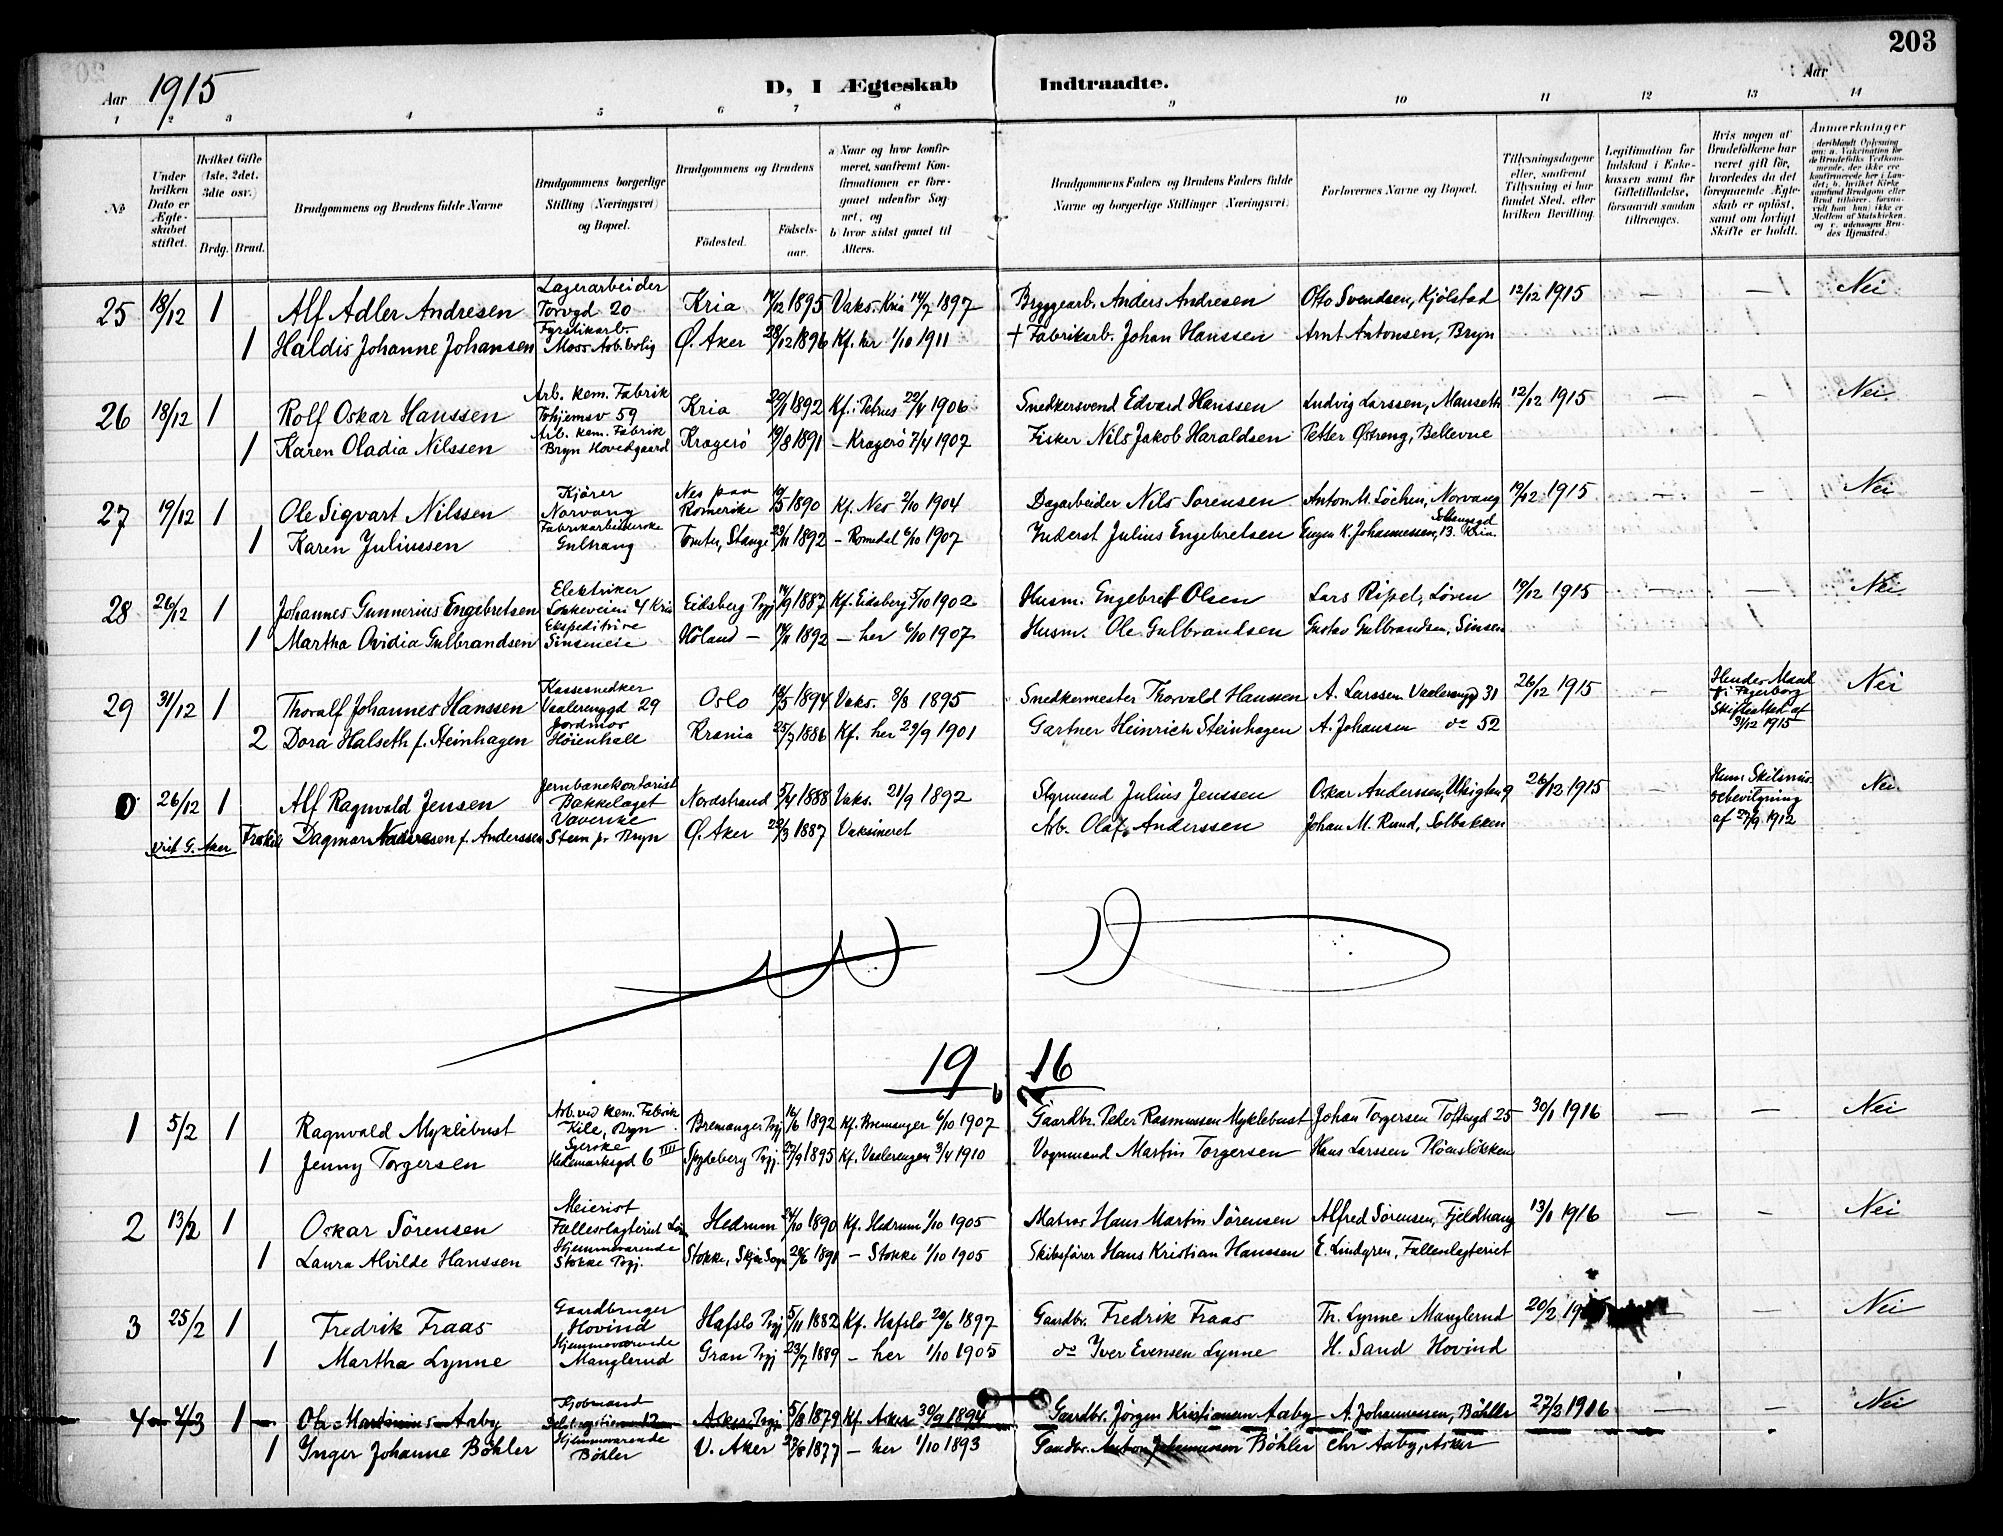 203
Aar 1915
D, I Ægteskab Indtraadte.
: Aar
1 2 3 4 5 6 7 8 9 10 11 12 13 14
№
Under hvilken Dato er Ægteskabet stiftet.
Hvilket Gifte (1ste, 2det, 3die osv.)
Brdg. Brud.
Brudgommens og Brudens fulde Navne
Brudgommens borgerlige Stilling (Næringsvei) og Bopæl.
Brudgommens og Brudens
Fødested.
Fødselsaar.
a) Naar og hvor konfirmeret, saafremt Konfirmationen er foregaaet udenfor Sognet, og
b) hvor sidst gaaet til Alters.
Brudgommens Faders og Brudens Faders fulde Navne og borgerlige Stillinger (Næringsvei)
Forlovernes Navne og Bopæl.
Tillysningsdagene eller, saafremt Tillysning ei har fundet Sted, efter hvilken Bevilling.
Legitimation for Indskud i Enkekassen samt for Giftetilladelse, forsaavidt saadan tiltrænges.
Hvis nogen af Brudefolkene har været gift før, hvorledes da det foregaaende Ægteskab er opløst, samt om lovligt Skifte er holdt.
Anmærkninger
25 18/12 1 Alf Adler Andresen Lagerarbeider Torvgd 20 Kria 14/12 1895 Vaks. Kria 14/7 1897 Bryggearb. Anders Andresen Otto Svendsen, Kjölstad 12/12 1915 — — Nei
1 Haldis Johanne Johansen Fyrstikarb. Moss Arb.bolig Ø. Aker 28/12 1896 Kf. her 1/10 1911 + Fabrikarb. Johan Hanssen Arnt Antonsen, Bryn
26 18/12 1 Rolf Oskar Hanssen Arb. kem. Fabrik 59 Kria 20/1 1892 Kf. Petrus 22/4 1906 Snedkersvend Edvard Hanssen Ludvig Larssen, Manseth 12/12 1915 — — Nei
1 Karen Oladia Nilssen Arb. kem. Fabrik Bryn Hovedgaard Kragerö 19/8 1891 — Kragerö 7/4 1907 Fisker Nils Jakob Haraldsen Petter Östreng, Bellevue
27 19/12 1 Ole Sigvart Nilssen Kjörer Norvang Nes paa Romerike 10/5 1890 Kf. Nes 2/10 1904 Dagarbeider Nils Sorensen Anton M. Löchen, Norvang 19/12 1915 — — Nei
1 Karen Juliussen Fabrikarbeiderske Gulhaug Tomter, Stange 23/11 1892 — Romedal 6/10 1907 Inderst Julius Engebretsen Eugen K. Johannessen, 13. Kria.
28 26/12 1 Johannes Gunnerius Engebretsen Elektriker Lökkeveien 4 Kria Eidsberg Pgj 14/9 1887 Kf. Eidsberg 5/10 1902 Husm. Engebret Olsen Lars Ripel, Lören 19/12 1915 — — Nei
1 Martha Ovidia Gulbrandsen Ekspeditrice Sinsenveien Höland — 14/11 1892 — her 6/10 1907 Husm. Ole Gulbrandsen Gustav Gulbrandsen, Sinsen
29 31/12 1 Thoralf Johannes Hanssen Kassesnedker Vaalerenggd 29 Oslo 18/5 1894 Vaks. 8/8 1895 Snedkermester Thorvald Hanssen A. Larssen Vaalerenggd 31 26/12 1915 — Hendes Mand i Fagerborg Skifteattest af 31/12 1915 Nei
2 Dora Halseth f. Steinhagen Jordmor Höienhall Krania 25/7 1886 Kf. her 29/9 1901 Gartner Heinrich Steinhagen A. Johansen do 52
0 26/12 1 Alf Ragnvald Jensen Jernbanekontorist Bakkelaget Nordstrand 5/4 1888 Vaks. 21/9 1892 Styrmand Julius Jenssen Oskar Anderssen, 26/12 1915 — Hun: Skilsmissebevilgning af 27/9 1912 Nei
G. Aker Dagmar f. Anderssen Væverske Steen pr Bryn Ø. Aker 22/3 1887 Vaksineret Arb. Olaf Anderssen Johan M. Rund, Solbakken
19 16
1 5/2 1 Ragnvald Myklebust Arb. ved kem. Fabrik Kile, Bryn Bremanger Pgj 16/6 1892 Kf. Bremanger 6/10 1907 Gaardbr. Peder Rasmussen Myklebust Johan Torgersen Toftesgd 25 30/1 1916 — — Nei
1 Jenny Torgersen Syerske Hedemarksgd 6 IIII Spydeberg Pgj. 27/9 1895 Kf. Vaalerengen 3/4 1910 Vognmand Martin Torgersen Hans Larssen Plöenslökken
2 13/2 1 Oskar Sörensen Meierist Fællesslagteriet Hedrum 24/10 1890 Kf. Hedrum 1/10 1905 Matros Hans Martin Sörensen Alfred Sörensen, Fjeldhaug 13/1 1916 — — Nei
1 Laura Alvilde Hanssen Hjemmeværende Stokke Pgj. Stokke, Skjee Sogn 20/6 1891 — Stokke 1/10 1905 Skibsförer Hans Kristian Hanssen E. Lindgren, Fællesslagteriet
3 25/2 1 Fredrik Fraas Gaardbruger Hovind Hafslo Pgj 5/11 1882 Kf. Hafslo 20/6 1897 Gaardbr. Fredrik Fraas Th. Lynne Manglerud 20/2 — — Nei
1 Martha Lynne Hjemmeværende Manglerud Gran Pgj 23/7 1889 — her 1/10 1905 do Iver Evensen Lynne H. Sand Hovind
4 4/3 1 Ole Martinius Aaby Kjøbmand Asker Pgj 5/8 1879 Kf. Asker 30/9 1894 Gaardbr. Jörgen Kristiansen Aaby A. Johannessen, Böhler 27/2 1916 — — Nei
1 Inger Johanne Böhler Hjemmeværende Böhler V. Aker 27/8 1877 — her 1/10 1893 Gaardbr. Anton Johannessen Böhler Chr Aaby, Asker